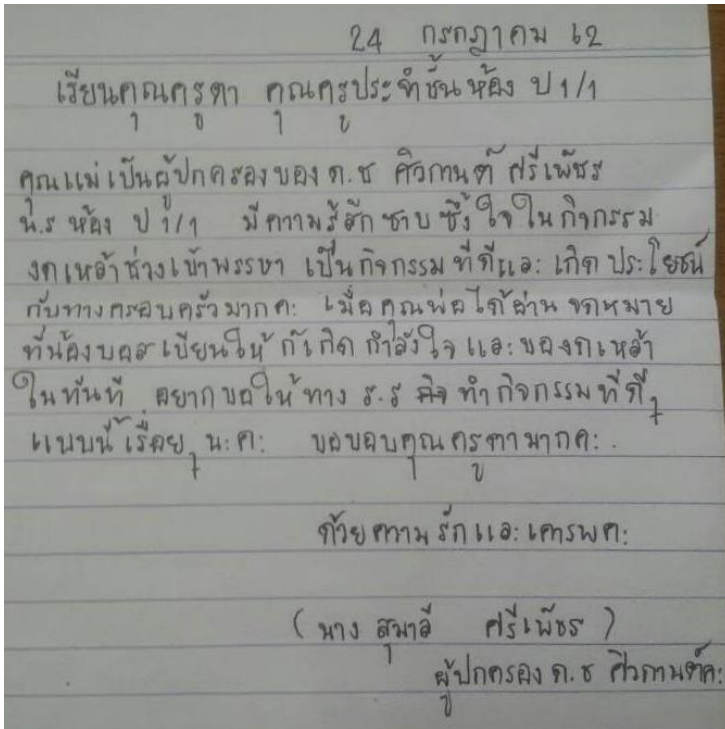 24 กรกฎาคม 62
เรียนคุณครูตา คุณครูประจำชั้นห้อง ป 1/1
คุณแม่เป็นผู้ปกครองของ ด.ช ศิวกานต์ ศรีเพ็ชร
น.ร ห้อง ป 1/1 มีความรู้สึกซาบซึ้งใจในกิจกรรม
งดเหล้าช่วงเข้าพรรษา เป็นกิจกรรมที่ดีและเกิดประโยชน์
กับทางครอบครัวมากคะ เมื่อคุณพ่อได้อ่านจดหมาย
ที่น้องบอสเขียนให้ ก้เกิดกำลังใจและของดเหล้า
ในทันที อยากขอให้ทาง ร.ร ทำกิจกรรมที่ดีๆ
แบบนี้เรื่อยๆนะคะ ขอบอบคุณครูตามากคะ.
ด้วยความรักและเคารพคะ
(นาง สุมาลี ศรีเพ็ชร)
ผู้ปกครอง ด.ช ศิวกานต์คะ